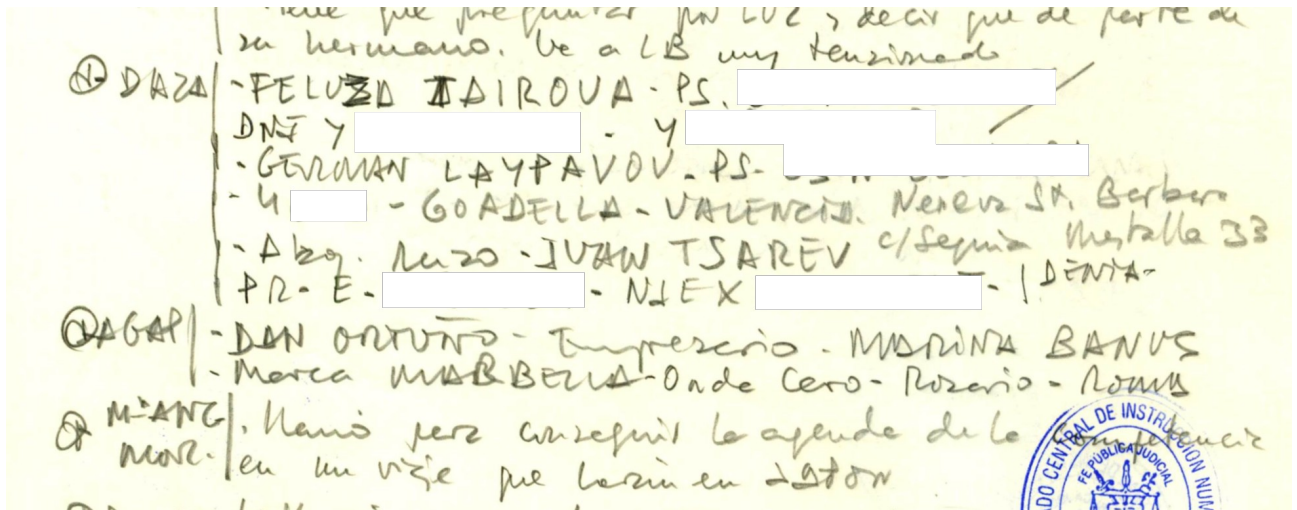 tiene que preguntar por LUZ y decir que de parte de
su hermano. Ve a LB muy tensionado
DAZA - FELUZA TAIROVA - PS.
DNI Y - Y
- GERMAN LAYPAVOV - PS -
- 4 - GOADELLA - VALENCIA. Sta. Barbara
- Abog. Ruso - JUAN TSAREV c/ Sequia Mestalla 33
PR - E - - NIEX - DENIA -
AGAP - DAN ORTUÑO - Empresario - MARINA BANUS
- Marca MARBELLA - Onda Cero - Rosario - ROMAN
Mª ANG . Llamó para conseguir la agenda de la Competencia
MOR. en un viaje que hacían en
JUZGADO CENTRAL DE INSTRUCCION NUM
FE PÚBLICA JUDICIAL